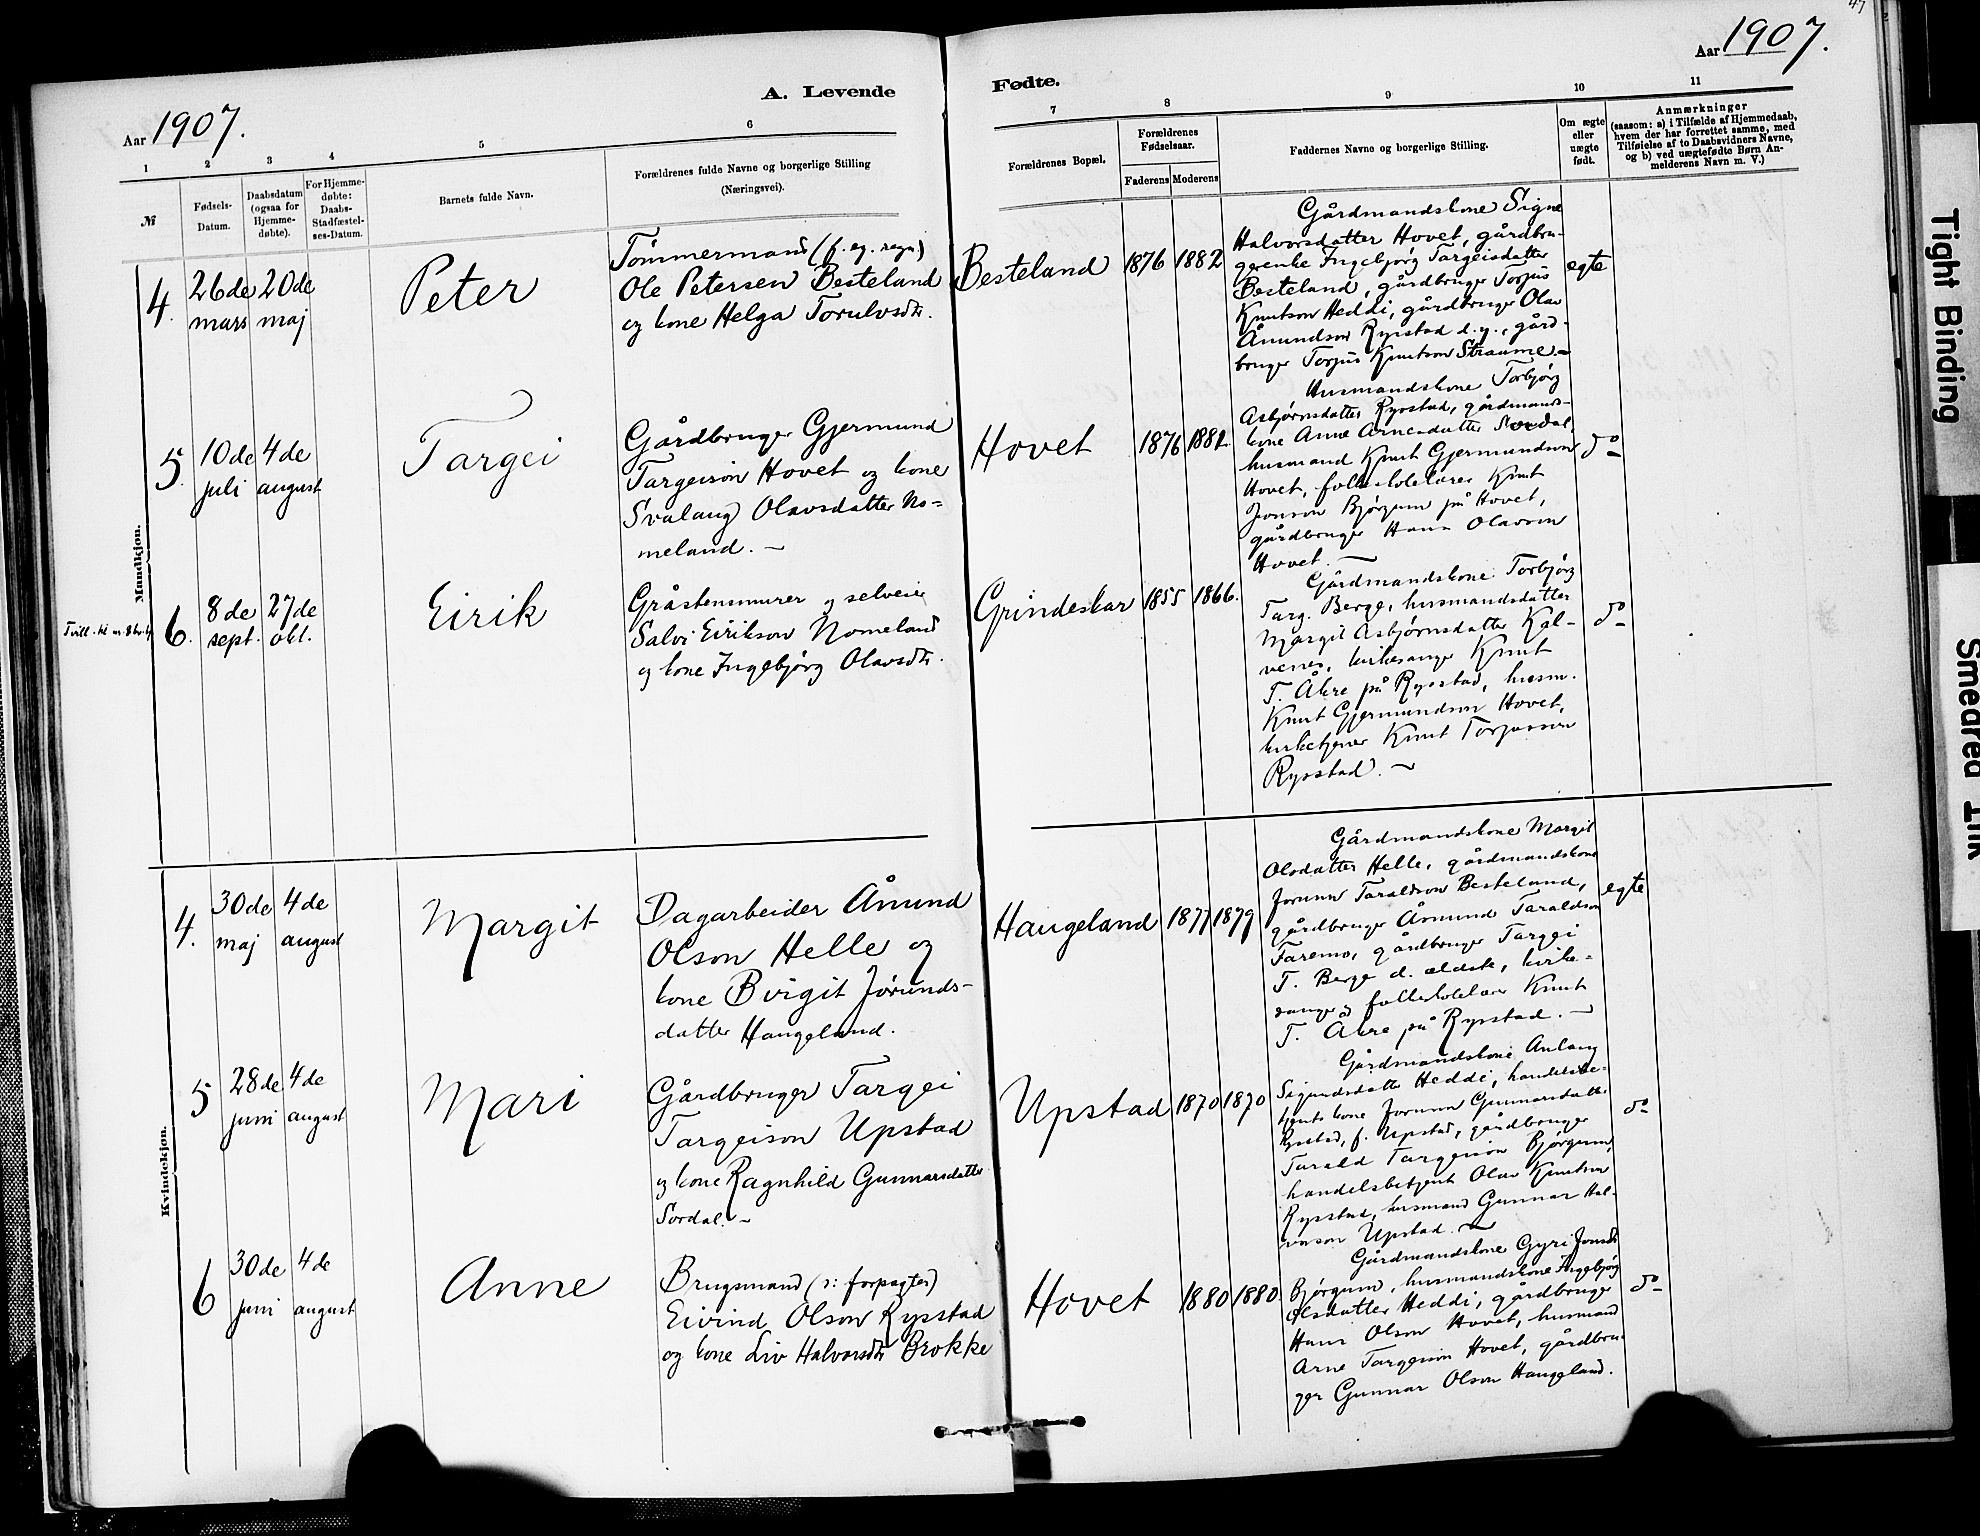 47
Aar 1907.
A. Levende
1 2 3 4 5 6
№
Fødsels-
Datum.
Daabsdatum
(ogsaa for
Hjemme-
døbte).
For Hjemme-
døbte:
Daabs-
Stadfæstel-
ses-Datum.
Barnets fulde Navn.
Forældrenes fulde Navne og borgerlige Stilling
(Næringsvei).
Mandkjøn.
4.
26de
mars
20de
maj
Peter
Tømmermand (f. eg. regn)
Ole Petersen Besteland
og kone Helga Torulvsdtr.
5.
10de
juli
4de
august
Targei
Gårdbruger Gjermund
Targeison Hovet og kone
Svalaug Olavsdatter No-
meland. —
6.
8de
sept.
27de
okt.
Eirik
Gråstensmurer og selveier
Salvi Eirikson Nomeland
og kone Ingebjørg Olavsdtr.
Kvindekjøn.
4.
30de
maj
4de
august
Margit
Dagarbeider Åmund
Olson Helle og
kone Birgit Jørunds-
datter Haugeland.
5
28de
juni
4de
august
Mari
Gårdbruger Targei
Targeison Upstad
og kone Ragnhild Gunnarsdatter
Sordal. —
6
30de
juni
4de
august
Anne
Brugsmand (ɔ: forpagter)
Eivind Olson Rysstad
og kone Liv Halvorsdtr Brokke
Aar 1907.
Fødte.
7 8 9 10 11
Forældrenes Bopæl.
Forældrenes
Fødselsaar.
Faderens Moderens
Faddernes Navne og borgerlige Stilling.
Om ægte
eller
uægte
født.
Anmærkninger
(saasom: a) i Tilfælde af Hjemmedaab,
hvem der har forrettet samme, med
Tilføielse af to Daabsvidners Navne,
og b) ved uægtefødte Børn An-
melderens Navn m. V.)
Besteland 1876 1882
Gårdmandskone Signe
Halvorsdatter Hovet, gårdbru-
gerenke Ingebjørg Targeisdatter
Besteland, gårdbruger Torjus
Knutson Heddi, gårdbruger Olav
Åmundson Rysstad d.y., gård-
bruger Torjus Knutson Straume. —
egte
Hovet 1876 1882
Husmandskone Torbjørg
Asbjørnsdatter Rysstad, gårdmands-
kone Anne Arnesdatter Sordal,
husmand Knut Gjermundson
Hovet, folkeskolelærer Knut
Jonson Bjørgum på Hovet,
gårdbruger Hans Olavson
Hovet. —
do
Grindeskar 1855 1866.
Gårdmandskone Torbjørg
Targ. Berge, husmandsdatter
Margit Asbjørnsdatter Kal-
venes, kirkesanger Knut
T. Åkre på Rysstad, husm.
Knut Gjermundson Hovet,
kirketjener Knut Torjusson
Rysstad. —
do
Haugeland 1877 1879
Gårdmandskone Margit
Olsdatter Helle, gårdmandskone
Jorunn Taraldson Besteland,
gårdbruger Åsmund Taraldson
Faremo, gårdbruger Targei
T. Berge d. ældste, kirke-
sanger og folkeskolelærer Knut
T. Åkre på Rysstad. —
egte
Upstad 1870 1870
Gårdmandskone Anlaug
Sigurdsdatter Heddi, handelsbe-
tjents kone Jorunn Gunnarsdatter
Rysstad, f. Upstad, gårdbruger
Tarald Targeison Bjørgum,
handelsbetjent Olav Knutson
Rysstad, husmand Gunnar Hal-
vorson Upstad. —
do
Hovet 1880 1880
Gårdmandskone Gyri Jonsdtr
Bjørgum, husmandskone Ingebjørg
Olsdatter Heddi, gårdbruger
Hans Olson Hovet, husmand
Arne Targeison Hovet, gårdbru-
ger Gunnar Olson Haugeland.
do
Tight Binding
Smeared Ink